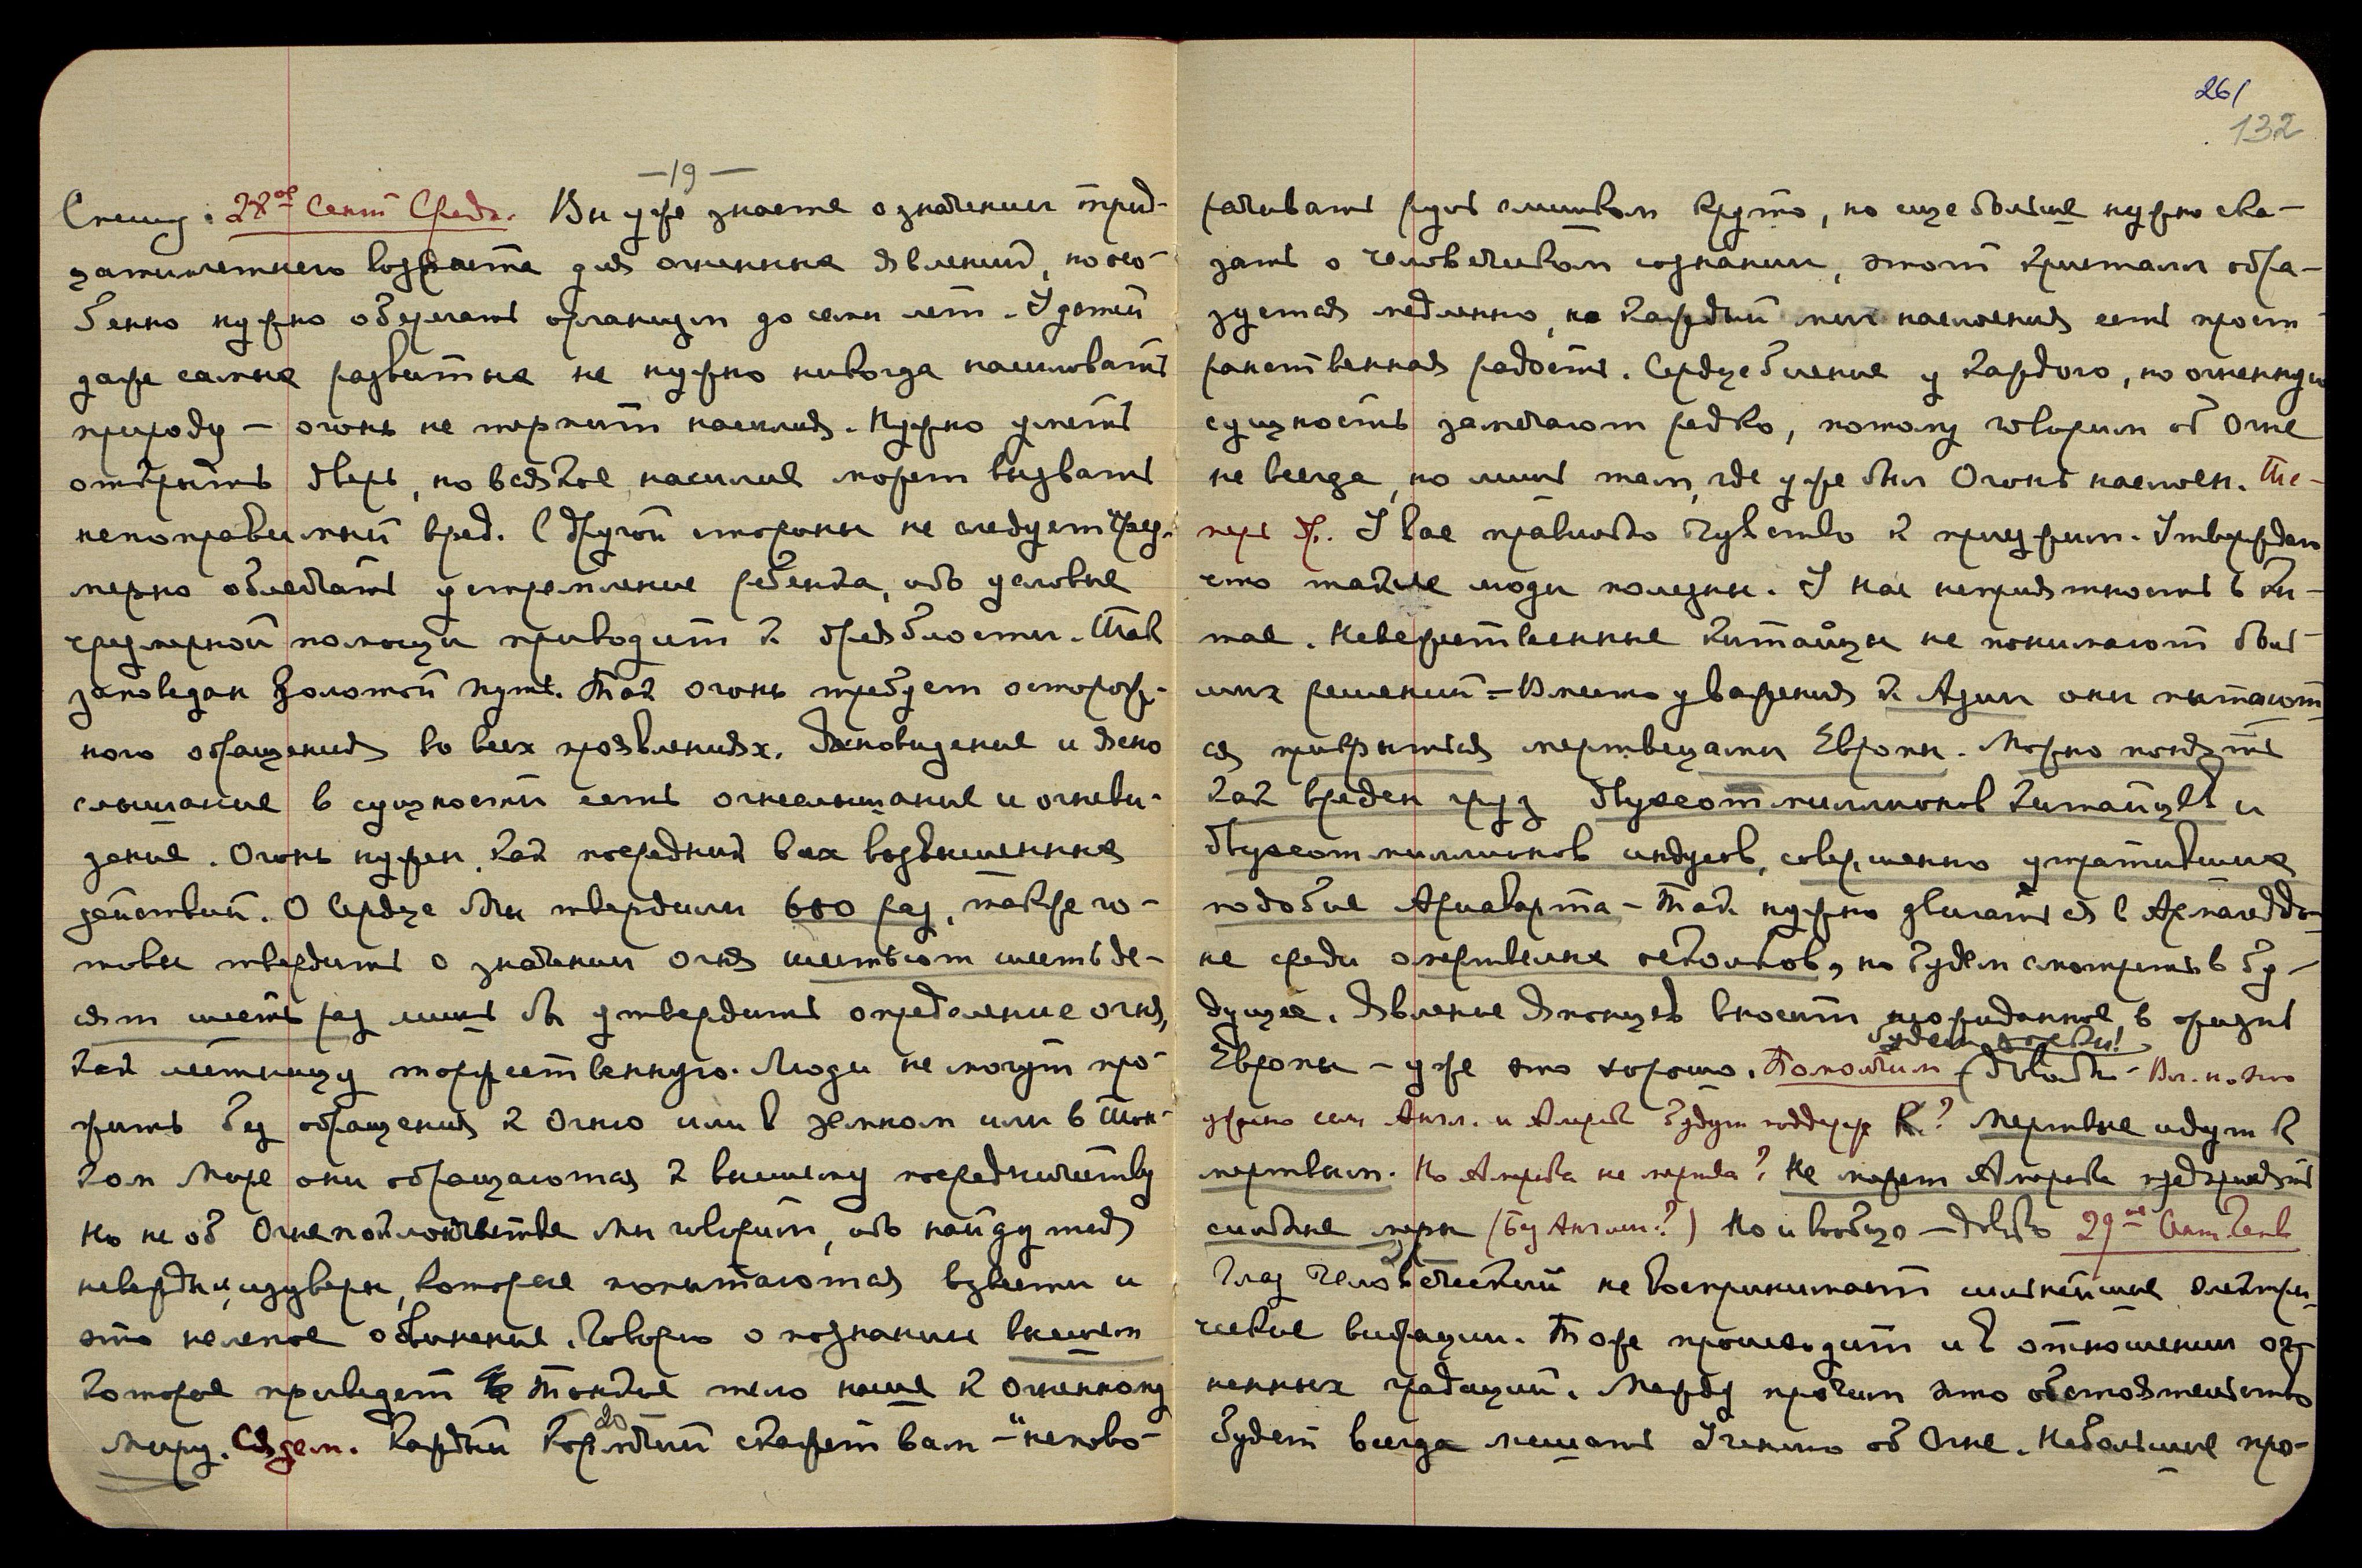 261
132
—19—
Спешу. 28ое Сент Среда. Вы уже знаете о значении трид-
цатилетнего возраста для огненных явлений, но осо-
бенно нужно оберегать организм до семи лет. У детей
даже самых развитых не нужно никогда насиловать
природу — огонь не терпит насилия. Нужно уметь
открыть дверь, но всякое насилие может вызвать
непоправимый вред. С другой стороны не следует чрез-
мерно облегчать устремление ребенка, ибо условие
чрезмерной помощи приводит к дряблости. Так
заповедан Золотой путь. Так огонь требует осторож-
ного обращения во всех проявлениях. Ясновидение и ясно
слышание в сущности есть огнеслышание и огневи-
дение. Огонь нужен, как посредник всех возвышенных
действий. О Сердце Мы твердили 600 раз, также го-
товы твердить о значении Огня шестьсот шестьде-
сят шесть раз лишь бы утвердить определение огня,
как лестницу торжественную. Люди не могут про-
жить без обращения к Огню или в земном или в Тон-
ком Мире они обращаются к высшему посредничеству
Но не об Огнепоклонничестве Мы говорим, ибо найдутся
невежды, изуверы, которые попытаются взвести и
это нелепое обвинение. Говорю о познании высшем
которое приведет Тонкое тело наше к Огненному
Миру. Сядем. Каждый кормчий скажет вам — "неново-
рачивать руль слишком круто, но еще больше нужно ска-
зать о человеческом сознании, этот кристалл обра-
зуется медленно, но каждый миг наслоения есть прост
ранственная радость. Сердцебиение у каждого, но огненную
сущность замечают редко, потому говорим об Огне
не всегда, но лишь там, где уже был Огонь наслоен. Те-
перь Др. У вас правильно чувство к приезжим. Утверждаю
что такие люди полезны. У нас неприятность в Ки-
тае. Невежественные китайцы не понимают быст
ших решений — Вместо уважения к Азии они пытают
ся прикрыться мертвецами Европы. Можно понять
как вреден груз двухсот миллионов китайцев и
двухсот миллионов индусов, совершенно утративших
подобие Ариаварта — Так нужно двигаться с Армагеддо-
не среди омертвелых осколков, но будем смотреть в бу-
дущее. Явление Японцев вносит неожиданное в жизнь
Европы — уже это хорошо. Помолчим — довольно — Вл. но это
будет
ужасно если Англ. и Америка будут поддерж К.? Мертвые идут к
мертвым. Но Америка не мертва? Не может Америка предпринять
сильные меры (без Англии?) Но и вообще — довольно 29ое Сент Четв
Глаз человеческий не воспринимает сильнейшие электри-
ческие вибрации. Тоже происходит и в отношении ог-
ненных градаций. Между прочим это обстоятельство
будет всегда мешать Учению об Огне. Небольшие про-